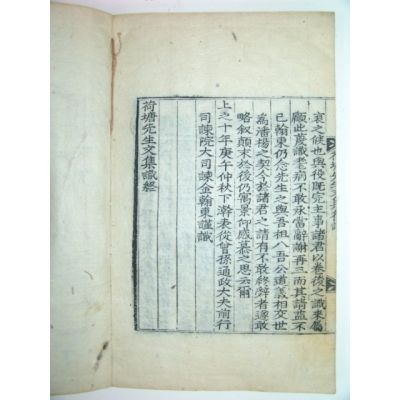 哀之候也與役旣完主事諸君以卷後之識來屬
顧此蔑識老病不敢承當辭謝再三而其請益不
已翰東仍念先生之與吾祖八吾公道義相交世
爲潘楊之契今於諸君之請有不敢終辭者遂敢
略叙顚末於後仍寓景感慕之思云爾
上之十年庚午仲秋下澣表從曾孫通政大夫前行
司諫院大司諫金翰東謹識
荷塘先生文集識終